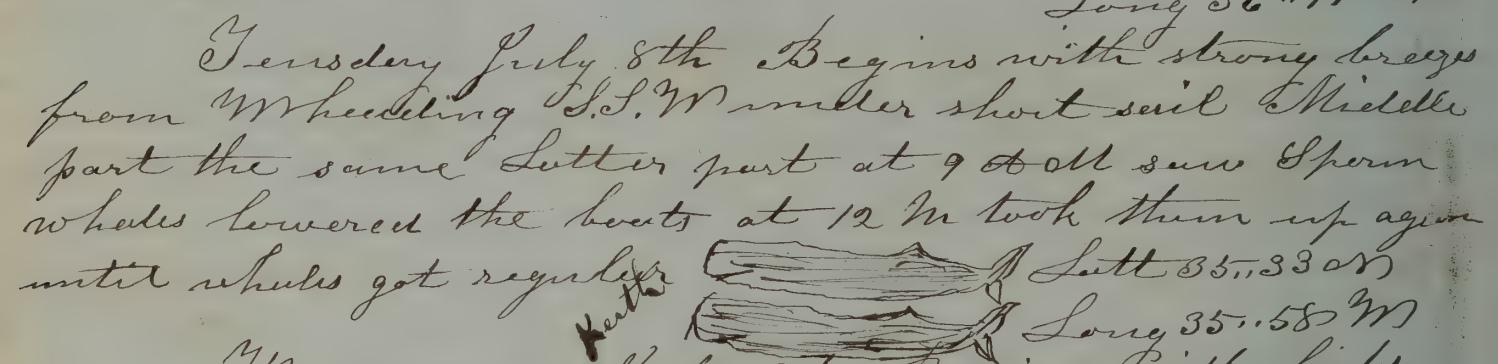 Long 36
Teusday July 8th Begins with strong breezes
from W heading S.S.W under short sail Middle
part the same Latter part at 9 A M saw Sperm
whales lowered the boats at 12 M took them up again
until whales got regular Latt 35..33 N
Long 35..58 W